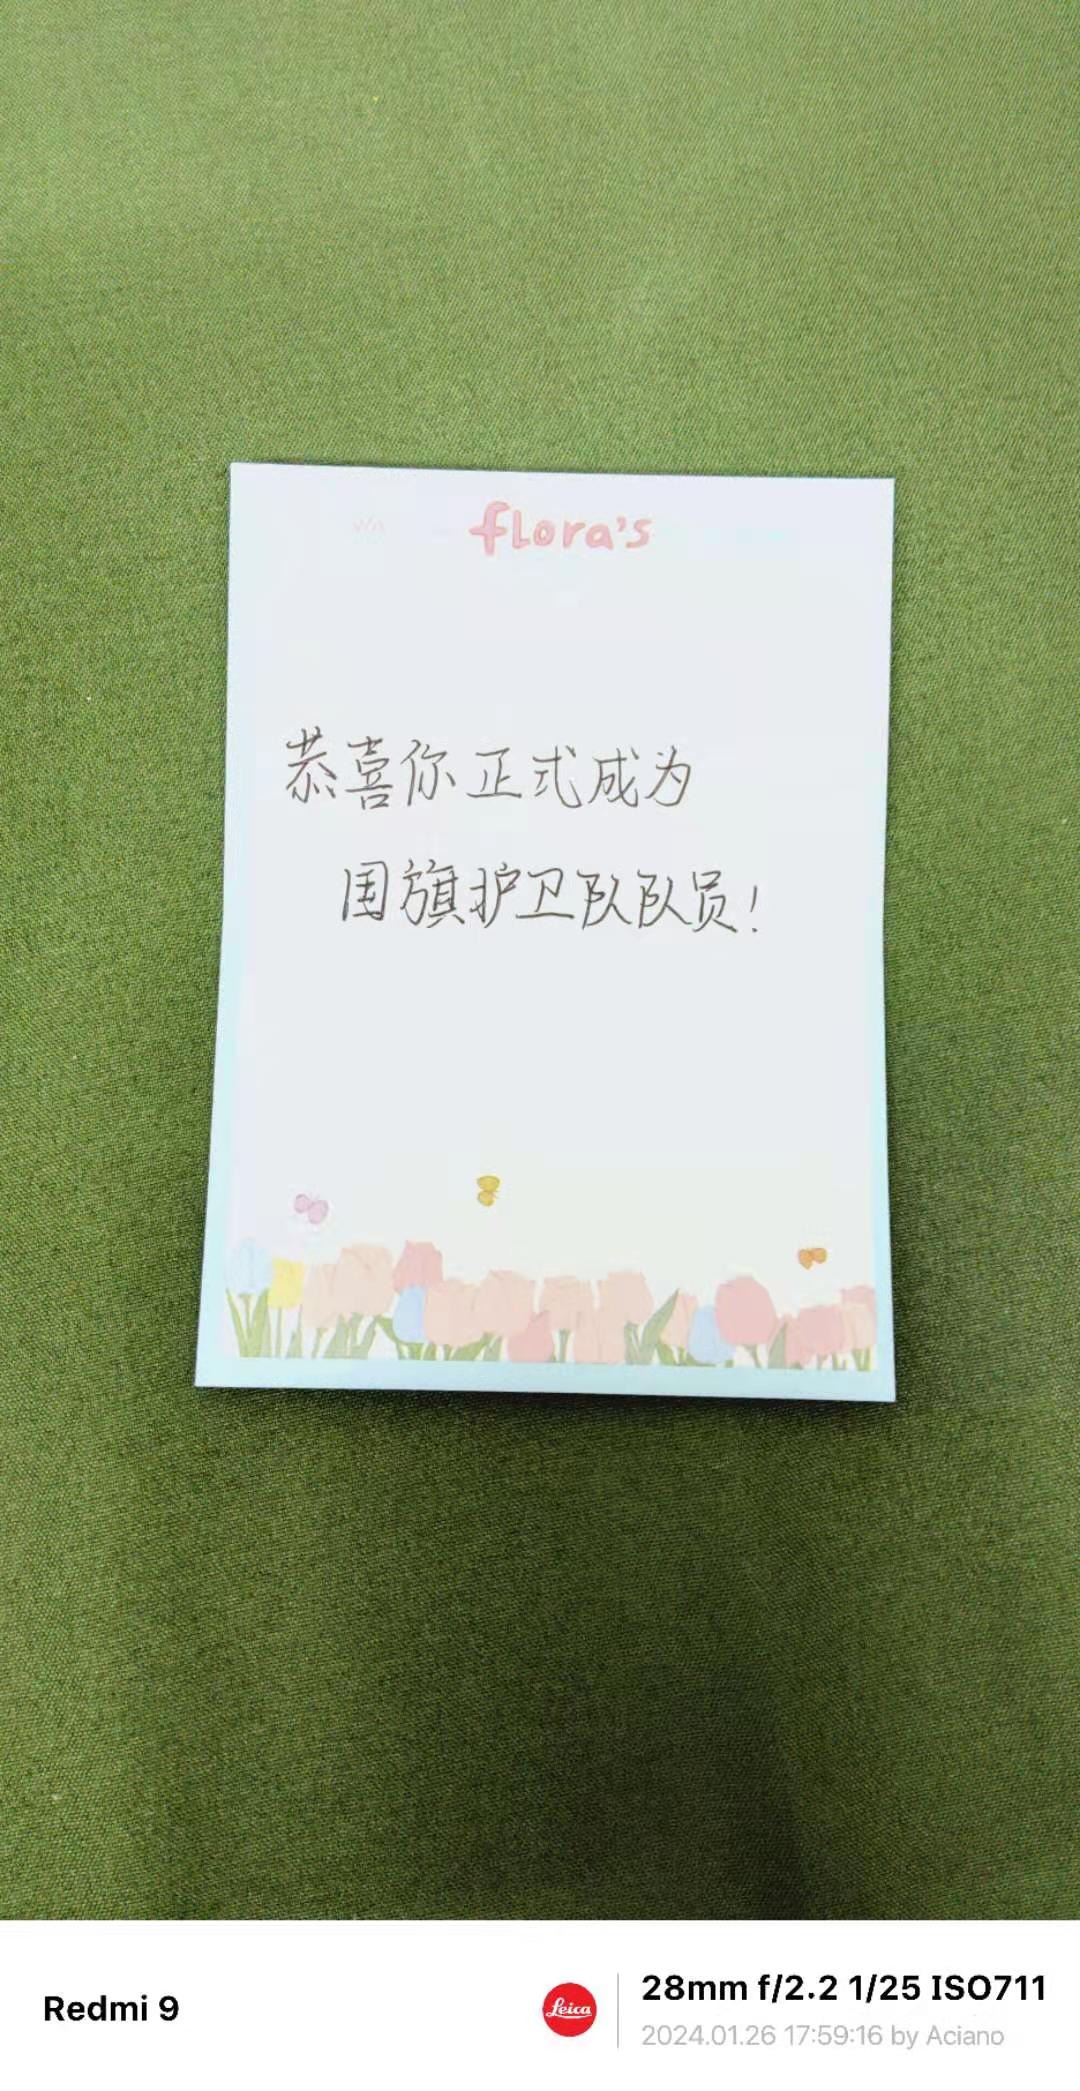 flora's
恭喜你正式成为
国旗护卫队队员！
Redmi 9
Leica
28mm f/2.2 1/25 ISO711
2024.01.26 17:59:16 by Aciano